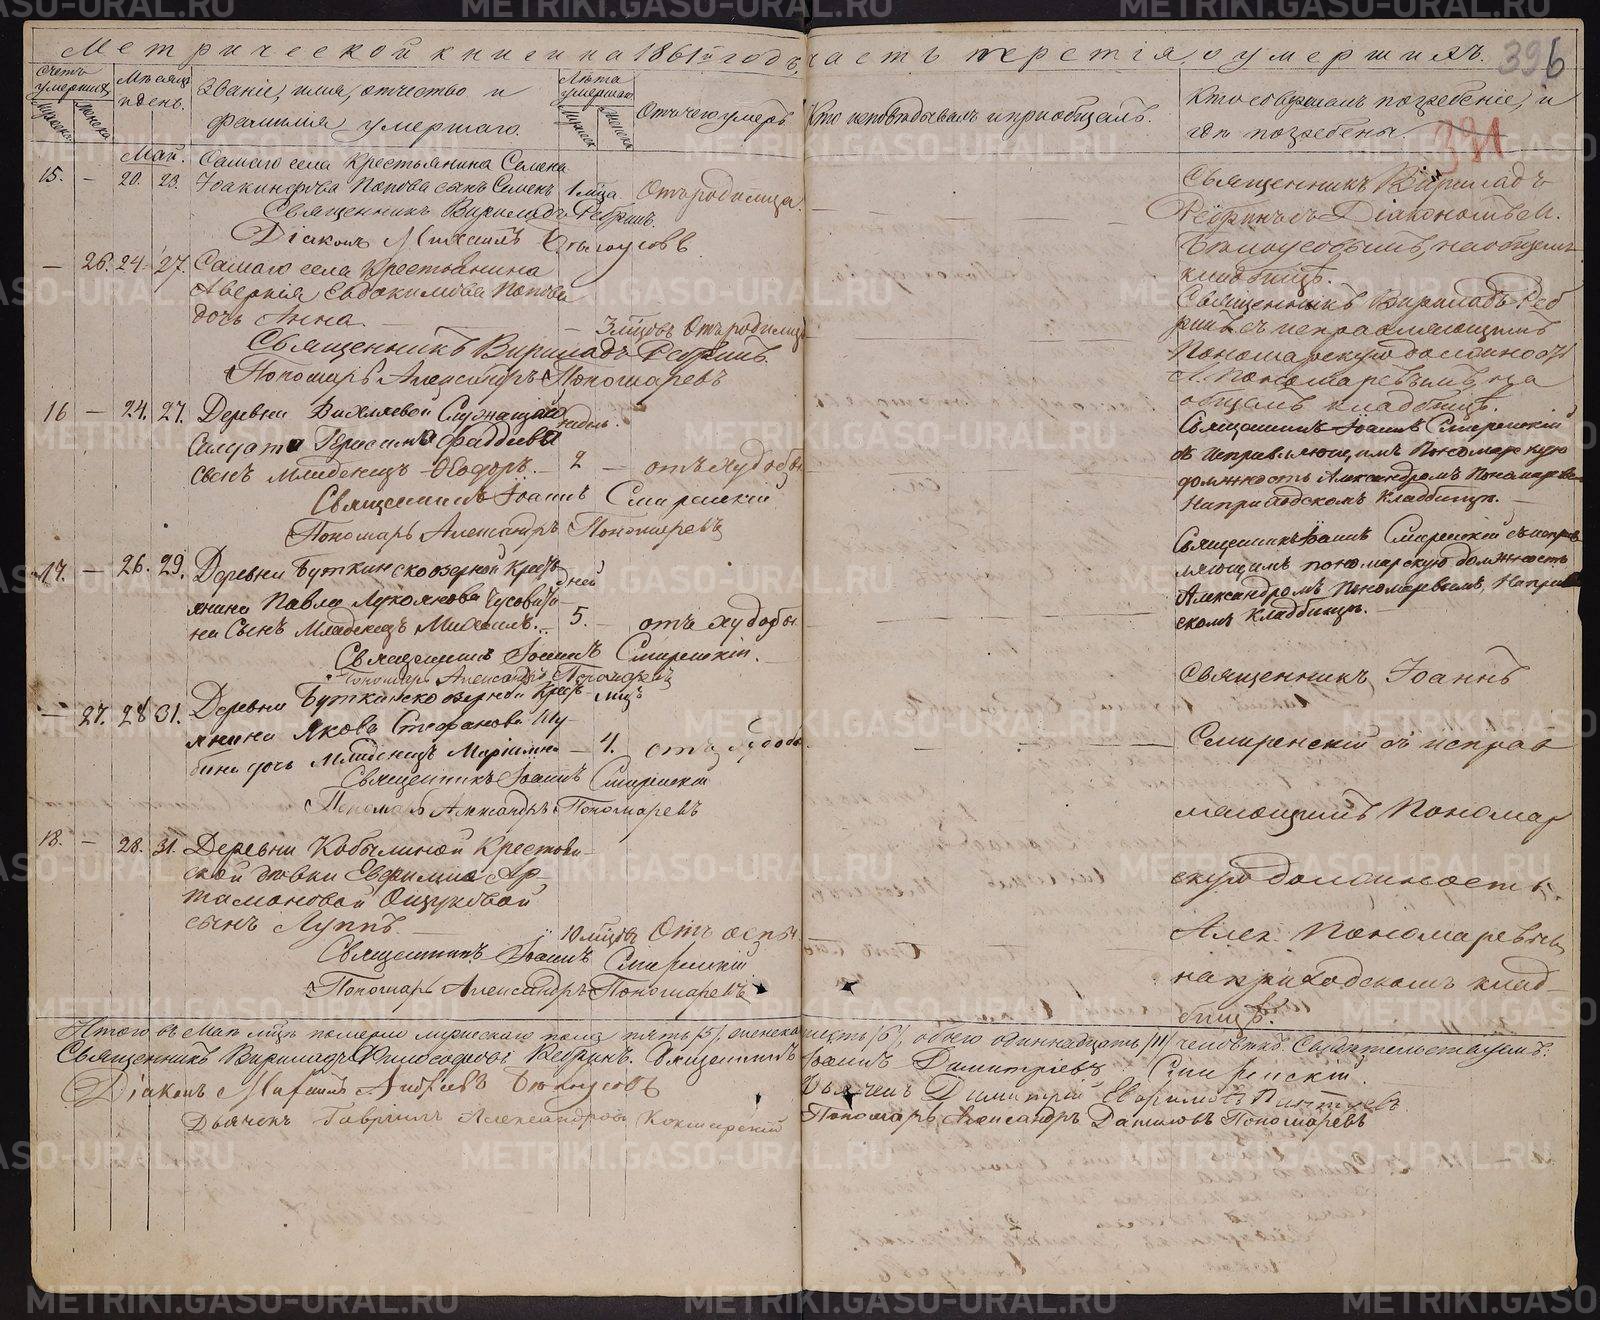 Метрической книги на 1861й годъ, часть третія, о умершихъ.
396
391
Счетъ умершихъ
Мужеска
Женска
Мѣсяцъ и день.
Званіе, имя, отчество и
фамилія умершаго.
Лѣта умершаго
Мужеска
Женска
Отъ чего умеръ
Кто исповѣдывалъ и пріобщалъ.
Кто совершалъ погребеніе, и
гдѣ погребены.
Май.
15. — 20. 23.
Самаго села крестьянина Семена
Іоакинфова Попова сынъ Семенъ 1 мѣсца. Отъ родимца.
Священникъ Вириладъ Ребринъ.
Діаконъ Михаилъ Бѣлоусовъ
Священникъ Вириладъ
Ребринъ съ Діакономъ М.
Бѣлоусовымъ, на общемъ
кладбищѣ.
— 26. 24. 27.
Самаго села крестьянина
Аверкія Евдокимова Попова
дочь Анна. — 3 мѣсцовъ Отъ родимца
Священникъ Вириладъ Ребринъ.
Пономарь Александръ Пономаревъ
Священникъ Вириладъ Реб
ринъ съ исправляющимъ
Пономарскую должность
А. Пономаревымъ, на
общемъ кладбищѣ.
16 — 24. 27.
Деревни Вихляевой Служащаго
Солдата Герасима Фаддеева
сынъ младенецъ Ѳедоръ. — недѣль. 2 — отъ худобы
Священникъ Іоаннъ Смиренскій
Пономарь Александръ Пономаревъ
Священникъ Іоаннъ Смиренскій
съ исправляющимъ Пономарскую
должность Александромъ Пономаревымъ
На приходскомъ Кладбищѣ. —
17. — 26. 29.
Деревни Буткинскоозерной Крес
янина Павла Лукоянова Чусовити
на Сынъ Младенецъ Михаилъ. дней 5. — отъ худобы
Священникъ Іоаннъ Смиренскій.
Пономарь Александръ Пономаревъ
Священникъ Іоаннъ Смиренскій съ исправ
ляющимъ пономарскую должность
Александромъ Пономаревымъ, На прихо
скомъ Кладбищѣ. —
— 27. 28 31.
Деревни Буткинскоозерной Крес
янина Якова Стефанова Шу
бина дочь Младенецъ Маріамна — мѣсц. 4. отъ худобы
Священникъ Іоаннъ Смиренскій
Пономарь Александръ Пономаревъ
Священникъ Іоаннъ
Смиренскій съ исправ
ляющимъ Пономар
скую должность
Алек. Пономаревымъ,
на приходскомъ клад
бищѣ.
18. — 28. 31.
Деревни Кобылиной Крестьян
ской дѣвки Евфиміи Ар
тамоновой Ощуковой
сынъ Луппъ. — 10 мѣсцовъ Отъ оспы
Священникъ Іоаннъ Смиренскій
Пономарь Александръ Пономаревъ
Итого въ Маѣ мѣсцѣ померло мужескаго пола пять /5/, женска шесть /6/, обоего одиннадцать /11/ человѣкъ. Свидѣтельствуемъ:
Священникъ Вириладъ Ребринъ. Священникъ Іоаннъ Димитріевъ Смиренскій.
Діаконъ Михаилъ Андреевъ Бѣлоусовъ Дьячекъ Димитрій
Дьячекъ Гавріилъ Александровъ Кокшарскій Пономарь Александръ Даниловъ Пономаревъ
METRIKI.GASO-URAL.RU